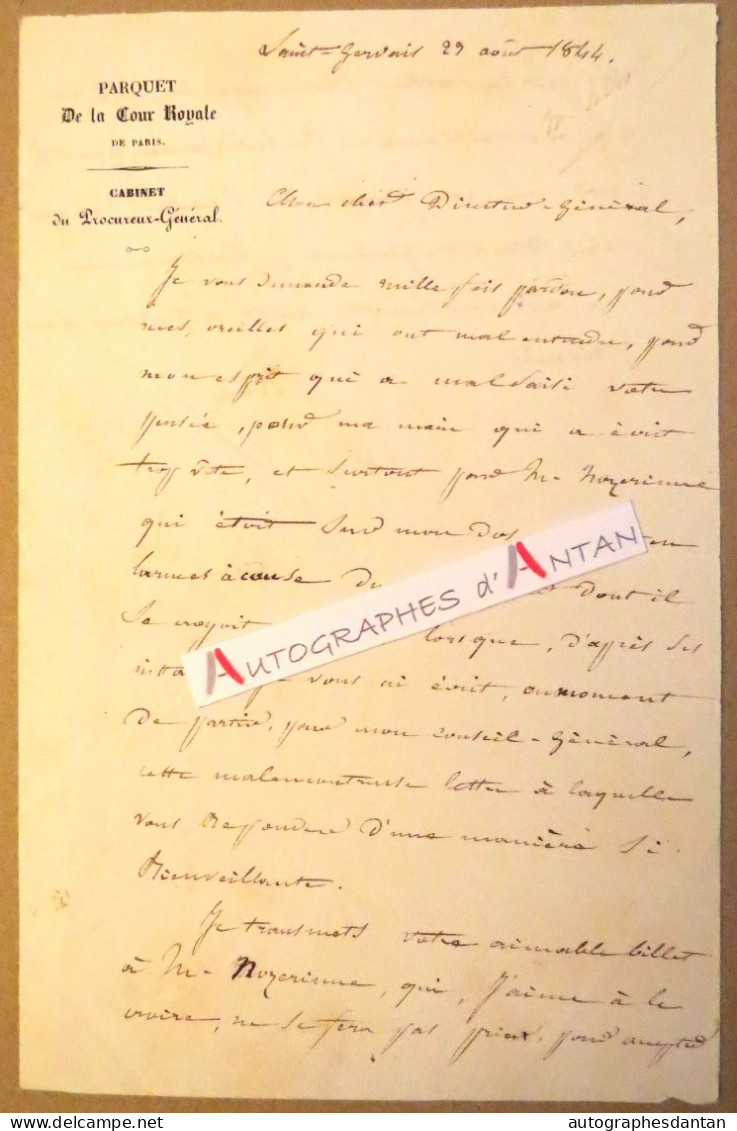 Saint-Gervais 29 août 1844.
PARQUET
De la Cour Royale
DE PARIS.
CABINET
du Procureur-Général.
Mon cher Directeur-Général,
Je vous demande mille fois pardon, pour
mes oreilles qui ont mal entendu, pour
mon esprit qui a mal saisi votre
pensée, pour ma main qui a écrit
trop vite, et surtout pour M. Noyerisme
qui étoit sur mon dos en
larmes à cause du dont il
se croyoit lorsque, d'après ses
je vous ai écrit, au moment
de partir, pour mon conseil-Général,
cette malencontreuse lettre à laquelle
vous répondez d'une manière si
bienveillante.
Je transmets votre aimable billet
à M. Noyerisme, qui, j'aime à le
croire, ne se fera pas prier, pour accepter
AUTOGRAPHES d'ANTAN
autographesdantan